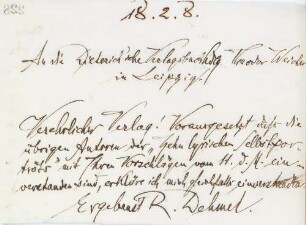 18.2.8.
An die Dieterich'sche Verlagsbuchhdlg Theodor Weicher
in Leipzig!
Verehrlicher Verlag! Vorausgesetzt daß die
übrigen Autoren der „Zehn lyrischen Selbstpor-
träts" mit Ihren Vorschlägen vom 11. d. M. ein-
verstanden sind, erkläre ich mich gleichfalls einverstanden.
Ergebenst R. Dehmel.